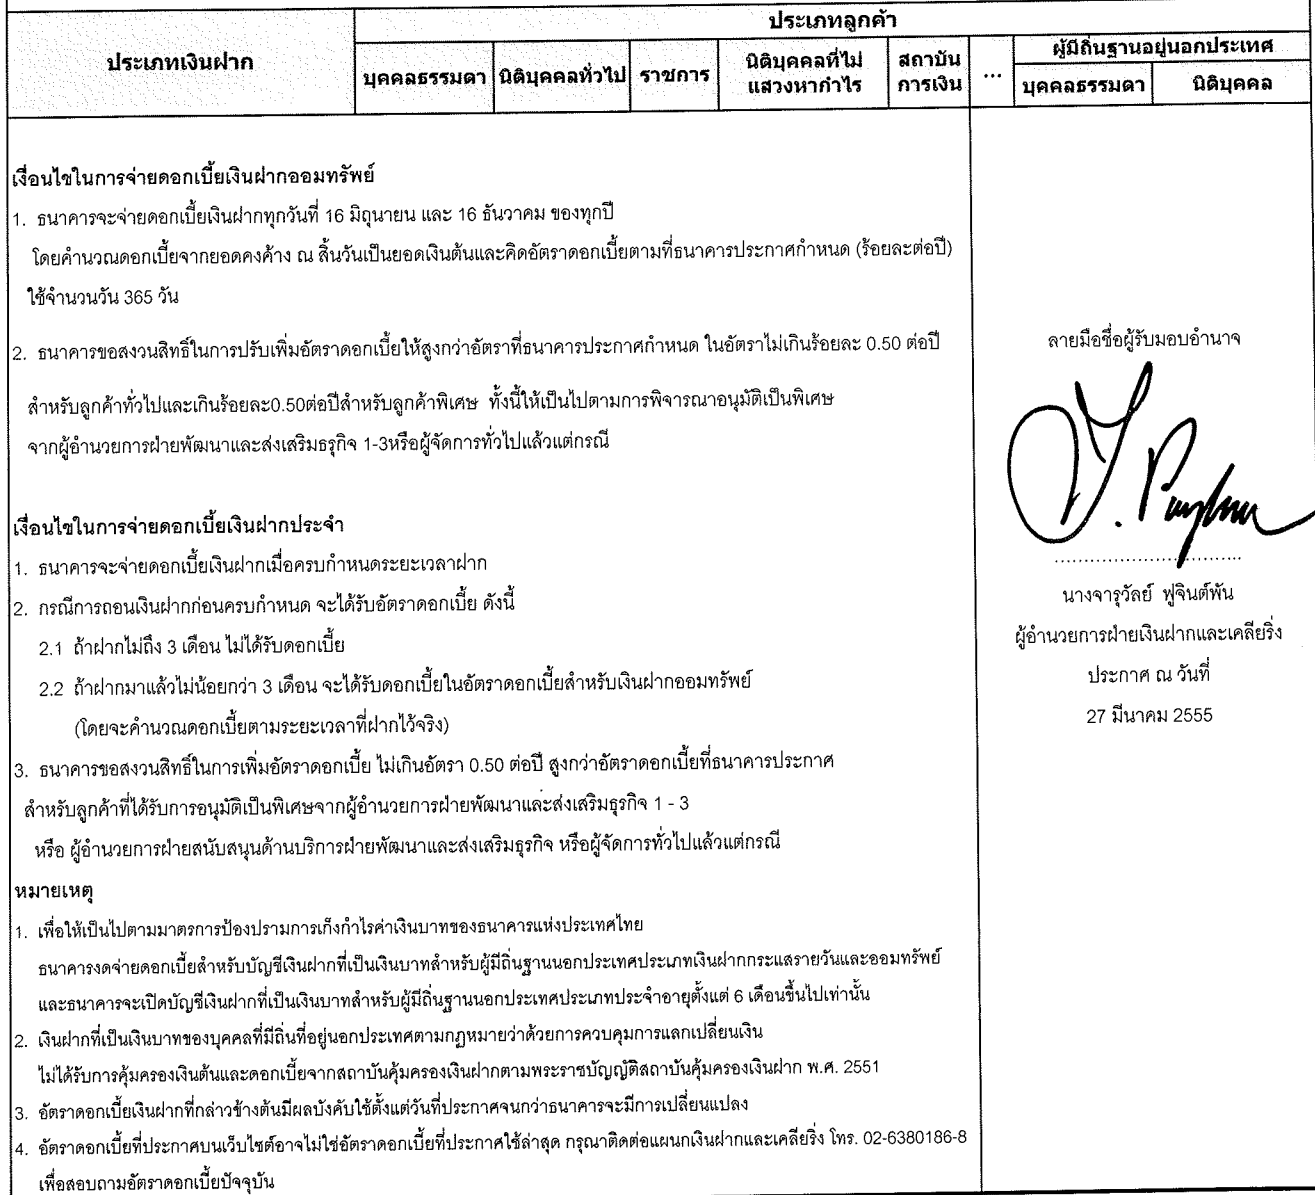 ประเภทลูกค้า
ประเภทเงินฝาก
บุคคลธรรมดา นิติบุคคลทั่วไป ราชการ นิติบุคคลที่ไม่แสวงหากำไร สถาบันการเงิน ... ผู้มีถิ่นฐานอยู่นอกประเทศ
บุคคลธรรมดา นิติบุคคล
เงื่อนไขในการจ่ายดอกเบี้ยเงินฝากออมทรัพย์
1. ธนาคารจะจ่ายดอกเบี้ยเงินฝากทุกวันที่ 16 มิถุนายน และ 16 ธันวาคม ของทุกปี
โดยคำนวณดอกเบี้ยจากยอดคงค้าง ณ สิ้นวันเป็นยอดเงินต้นและคิดอัตราดอกเบี้ยตามที่ธนาคารประกาศกำหนด (ร้อยละต่อปี)
ใช้จำนวนวัน 365 วัน
2. ธนาคารขอสงวนสิทธิ์ในการปรับเพิ่มอัตราดอกเบี้ยให้สูงกว่าอัตราที่ธนาคารประกาศกำหนด ในอัตราไม่เกินร้อยละ 0.50 ต่อปี
สำหรับลูกค้าทั่วไปและเกินร้อยละ0.50ต่อปีสำหรับลูกค้าพิเศษ ทั้งนี้ให้เป็นไปตามการพิจารณาอนุมัติเป็นพิเศษ
จากผู้อำนวยการฝ่ายพัฒนาและส่งเสริมธุรกิจ 1-3หรือผู้จัดการทั่วไปแล้วแต่กรณี
เงื่อนไขในการจ่ายดอกเบี้ยเงินฝากประจำ
1. ธนาคารจะจ่ายดอกเบี้ยเงินฝากเมื่อครบกำหนดระยะเวลาฝาก
2. กรณีการถอนเงินฝากก่อนครบกำหนด จะได้รับอัตราดอกเบี้ย ดังนี้
2.1 ถ้าฝากไม่ถึง 3 เดือน ไม่ได้รับดอกเบี้ย
2.2 ถ้าฝากมาแล้วไม่น้อยกว่า 3 เดือน จะได้รับดอกเบี้ยในอัตราดอกเบี้ยสำหรับเงินฝากออมทรัพย์
(โดยจะคำนวณดอกเบี้ยตามระยะเวลาที่ฝากไว้จริง)
3. ธนาคารขอสงวนสิทธิ์ในการเพิ่มอัตราดอกเบี้ย ไม่เกินอัตรา 0.50 ต่อปี สูงกว่าอัตราดอกเบี้ยที่ธนาคารประกาศ
สำหรับลูกค้าที่ได้รับการอนุมัติเป็นพิเศษจากผู้อำนวยการฝ่ายพัฒนาและส่งเสริมธุรกิจ 1 - 3
หรือ ผู้อำนวยการฝ่ายสนับสนุนด้านบริการฝ่ายพัฒนาและส่งเสริมธุรกิจ หรือผู้จัดการทั่วไปแล้วแต่กรณี
หมายเหตุ
1. เพื่อให้เป็นไปตามมาตรการป้องปรามการเก็งกำไรค่าเงินบาทของธนาคารแห่งประเทศไทย
ธนาคารงดจ่ายดอกเบี้ยสำหรับบัญชีเงินฝากที่เป็นเงินบาทสำหรับผู้มีถิ่นฐานนอกประเทศประเภทเงินฝากกระแสรายวันและออมทรัพย์
และธนาคารจะเปิดบัญชีเงินฝากที่เป็นเงินบาทสำหรับผู้มีถิ่นฐานนอกประเทศประเภทประจำอายุตั้งแต่ 6 เดือนขึ้นไปเท่านั้น
2. เงินฝากที่เป็นเงินบาทของบุคคลที่มีถิ่นที่อยู่นอกประเทศตามกฎหมายว่าด้วยการควบคุมการแลกเปลี่ยนเงิน
ไม่ได้รับการคุ้มครองเงินต้นและดอกเบี้ยจากสถาบันคุ้มครองเงินฝากตามพระราชบัญญัติสถาบันคุ้มครองเงินฝาก พ.ศ. 2551
3. อัตราดอกเบี้ยเงินฝากที่กล่าวข้างต้นมีผลบังคับใช้ตั้งแต่วันที่ประกาศจนกว่าธนาคารจะมีการเปลี่ยนแปลง
4. อัตราดอกเบี้ยที่ประกาศบนเว็บไซต์อาจไม่ใช่อัตราดอกเบี้ยที่ประกาศใช้ล่าสุด กรุณาติดต่อแผนกเงินฝากและเคลียริ่ง โทร. 02-6380186-8
เพื่อสอบถามอัตราดอกเบี้ยปัจจุบัน
ลายมือชื่อผู้รับมอบอำนาจ
นางจารุวัลย์ ฟูจินต์พัน
ผู้อำนวยการฝ่ายเงินฝากและเคลียริ่ง
ประกาศ ณ วันที่
27 มีนาคม 2555